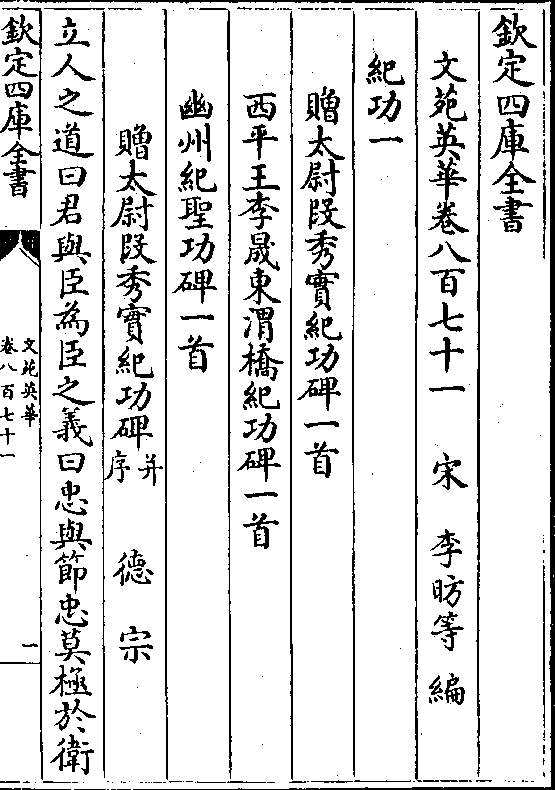 欽定四庫全書
文苑英華卷八百七十一　宋　李昉等　編
紀功一
贈太尉段秀實紀功碑一首
西平王李晟東渭橋紀功碑一首
幽州紀聖功碑一首
贈太尉段秀實紀功碑并序　德宗
立人之道曰君與臣為臣之義曰忠與節忠莫極於衛
欽定四庫全書
文苑英華
卷八百七十一
一